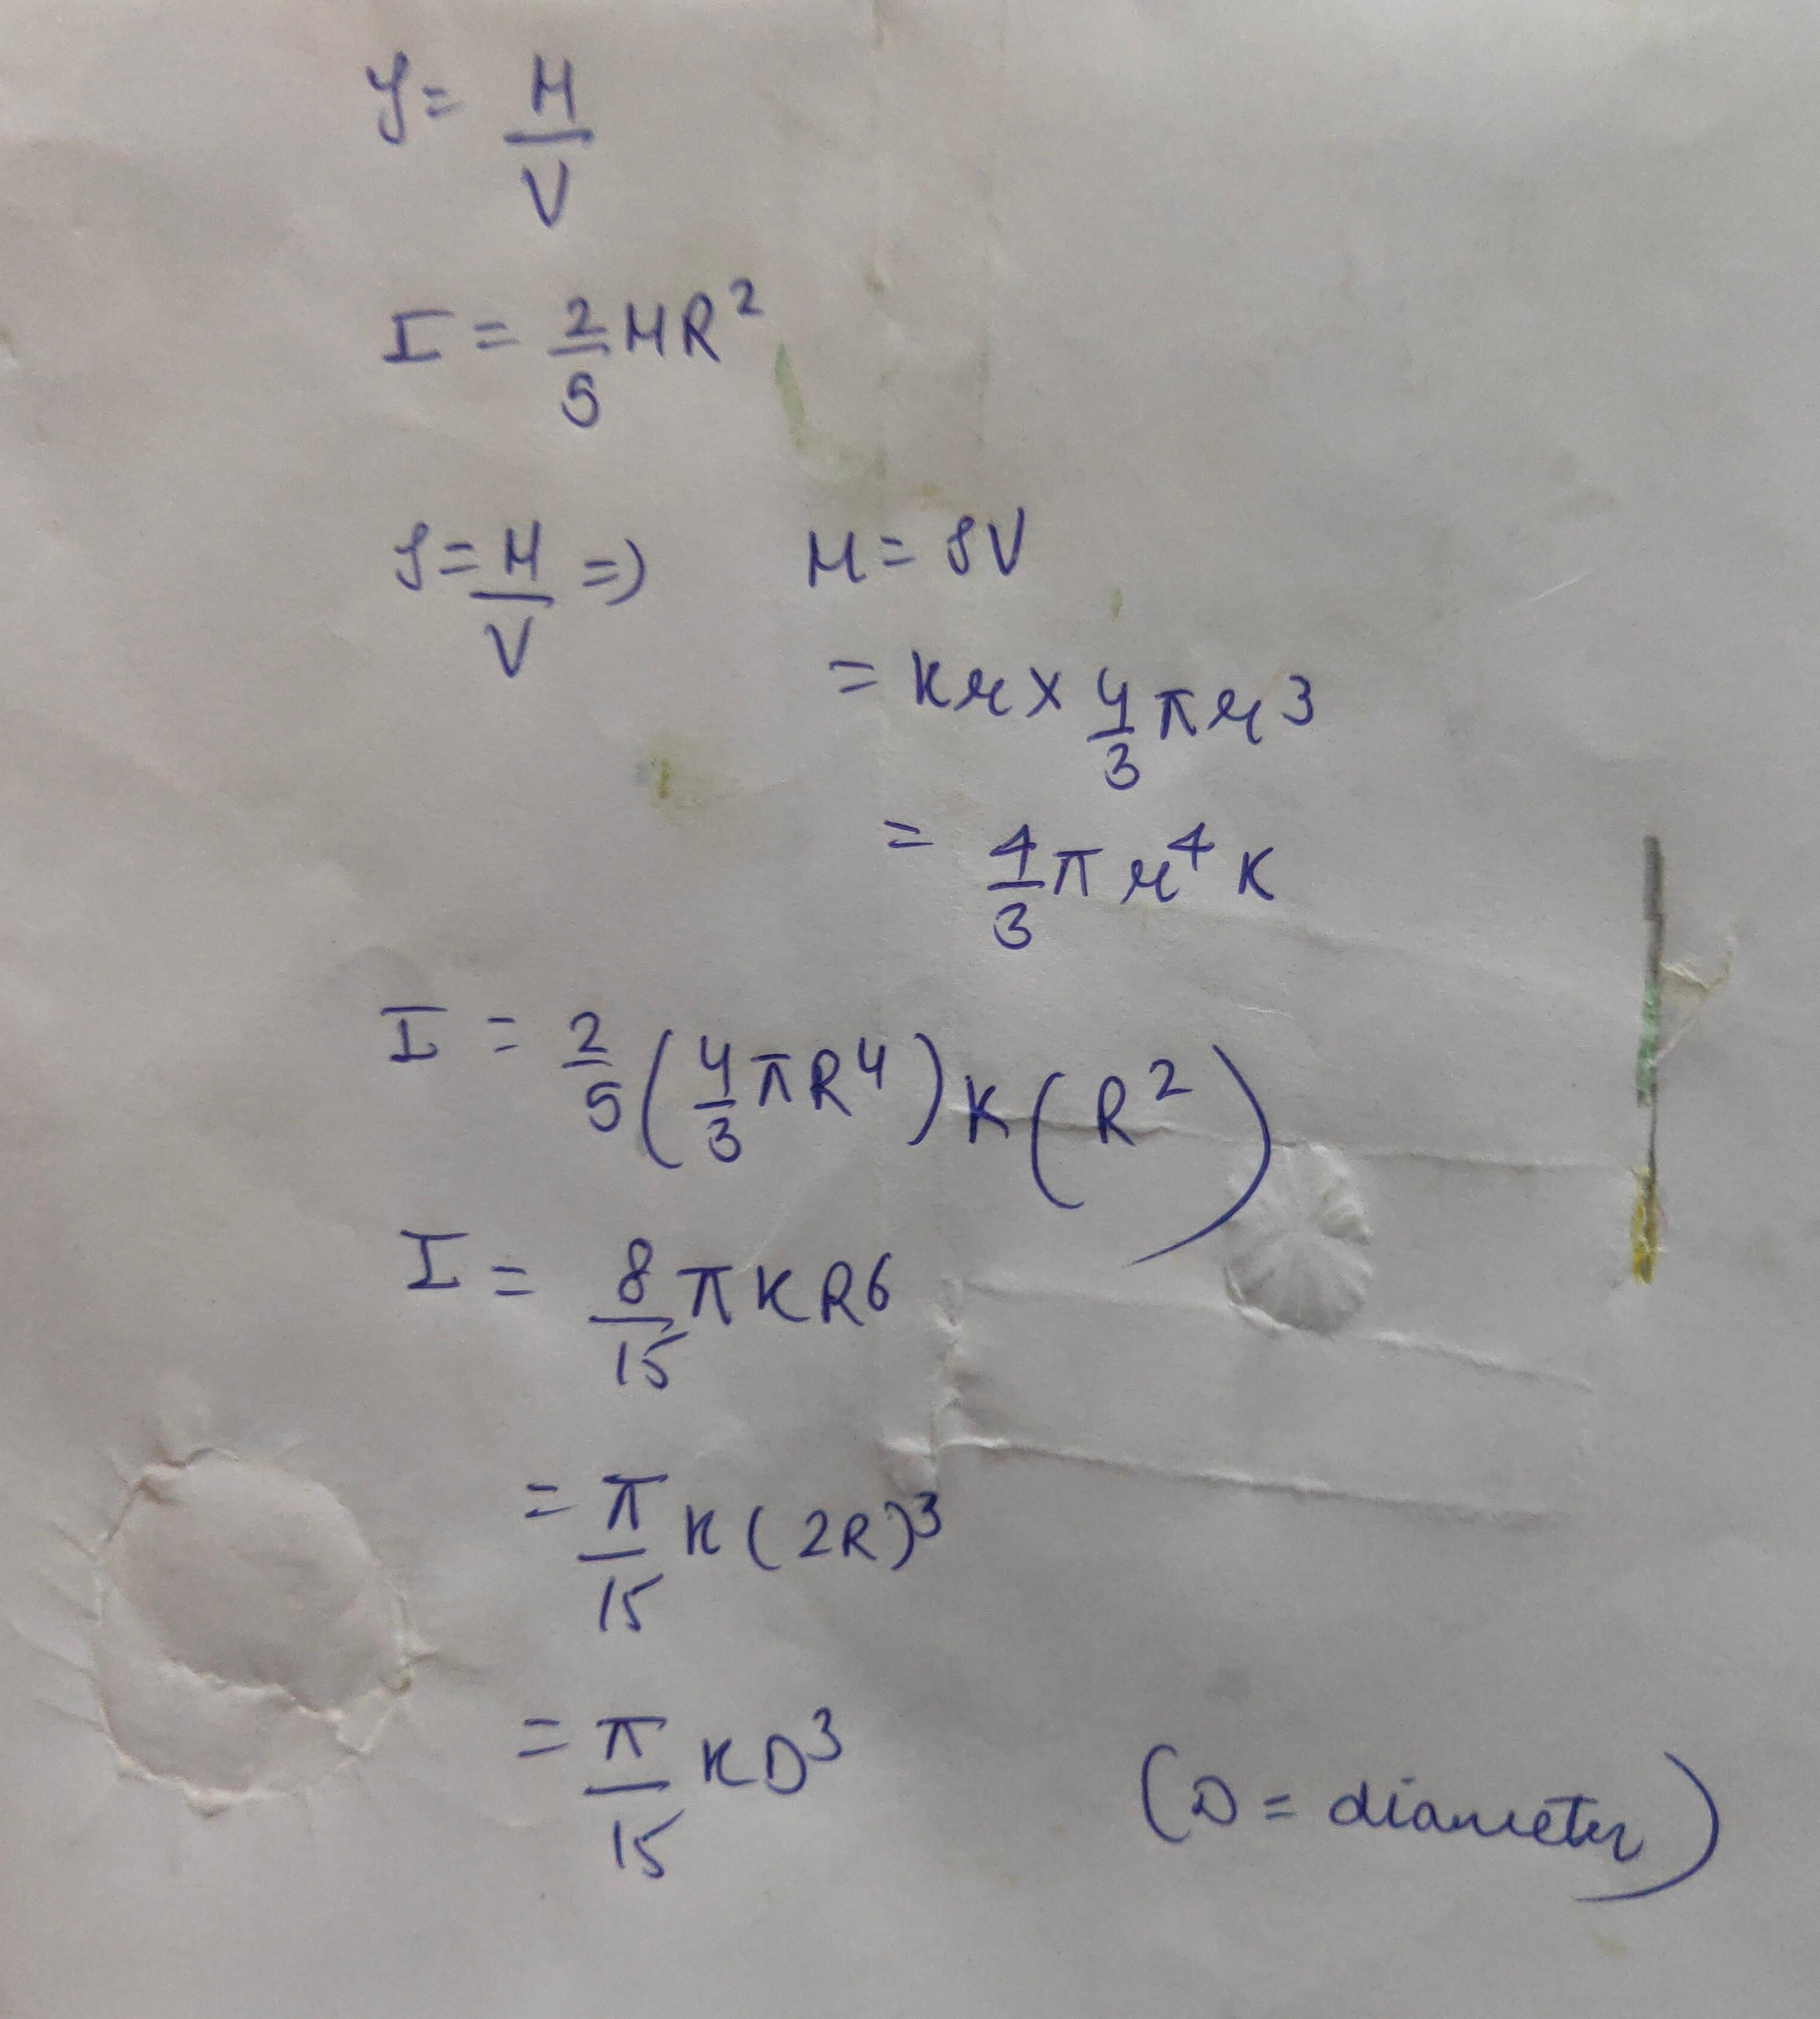 ρ = M/V
I = 2/5 MR²
ρ = M/V ⇒ M = ρV
= Kr × 4/3 πr³
= 4/3 πr⁴ K
I = 2/5 (4/3 πR⁴) K (R²)
I = 8/15 πKR6
= π/15 K(2R)³
= π/15 KD³ (D = diameter)